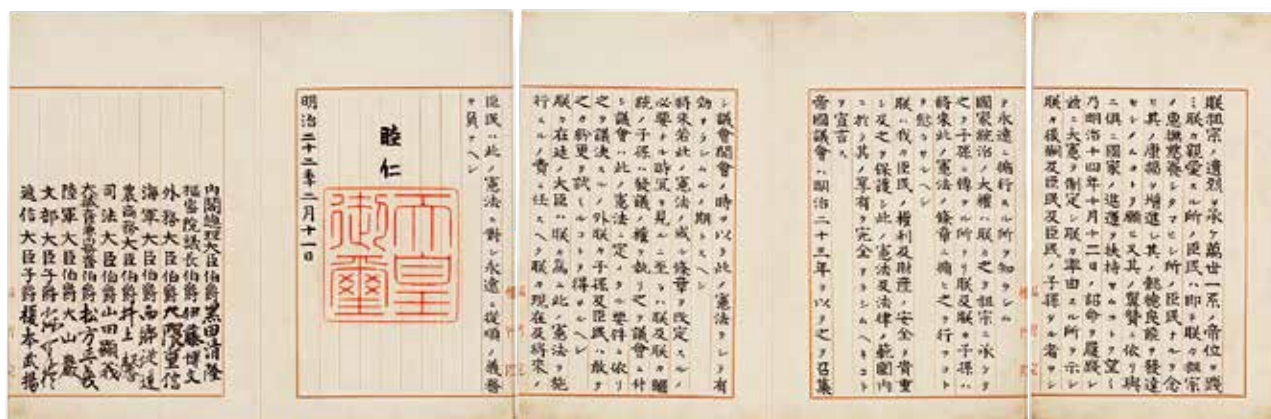 朕祖宗ノ遺烈ヲ承ケ萬世一系ノ帝位ヲ踐
ミ朕カ親愛スル所ノ臣民ハ即チ朕カ祖宗
ノ惠撫慈養シタマヒシ所ノ臣民ナルヲ念
ヒ其ノ康福ヲ增進シ其ノ懿德良能ヲ發達
セシメムコトヲ願ヒ又其ノ翼贊ニ依リ與
ニ俱ニ國家ノ進運ヲ扶持セムコトヲ望ミ
乃明治十四年十月十二日ノ詔命ヲ履踐シ
茲ニ大憲ヲ制定シ朕カ率由スル所ヲ示シ
朕カ後嗣及臣民及臣民ノ子孫タル者ヲシ
テ永遠ニ循行スル所ヲ知ラシム
國家統治ノ大權ハ朕カ之ヲ祖宗ニ承ケテ
之ヲ子孫ニ傳フル所ナリ朕及朕カ子孫ハ
將來此ノ憲法ノ條章ニ循ヒ之ヲ行フコト
ヲ愆ラサルヘシ
朕ハ我カ臣民ノ權利及財產ノ安全ヲ貴重
シ及之ヲ保護シ此ノ憲法及法律ノ範圍內
ニ於テ其ノ享有ヲ完全ナラシムヘキコト
ヲ宣言ス
帝國議會ハ明治二十三年ヲ以テ之ヲ召集
シ議會開會ノ時ヲ以テ此ノ憲法ヲシテ有
效ナラシムルノ期トスヘシ
將來若此ノ憲法ノ或ル條章ヲ改定スルノ
必要ナル時宜ヲ見ルニ至ラハ朕及朕カ繼
統ノ子孫ハ發議ノ權ヲ執リ之ヲ議會ニ付
シ議會ハ此ノ憲法ニ定メタル要件ニ依リ
之ヲ議決スルノ外朕カ子孫及臣民ハ敢テ
之カ紛更ヲ試ミルコトヲ得サルヘシ
朕カ在廷ノ大臣ハ朕カ爲ニ此ノ憲法ヲ施
行スルノ責ニ任スヘク朕カ現在及將來ノ
臣民ハ此ノ憲法ニ對シ永遠ニ從順ノ義務
ヲ負フヘシ
睦仁
天皇
御璽
明治二十二年二月十一日
內閣總理大臣伯爵黑田清隆
樞密院議長伯爵伊藤博文
外務大臣伯爵大隈重信
海軍大臣伯爵西鄕從道
農商務大臣伯爵井上馨
司法大臣伯爵山田顯義
大藏大臣兼內務大臣伯爵松方正義
陸軍大臣伯爵大山巖
文部大臣子爵森有禮
遞信大臣子爵榎本武揚